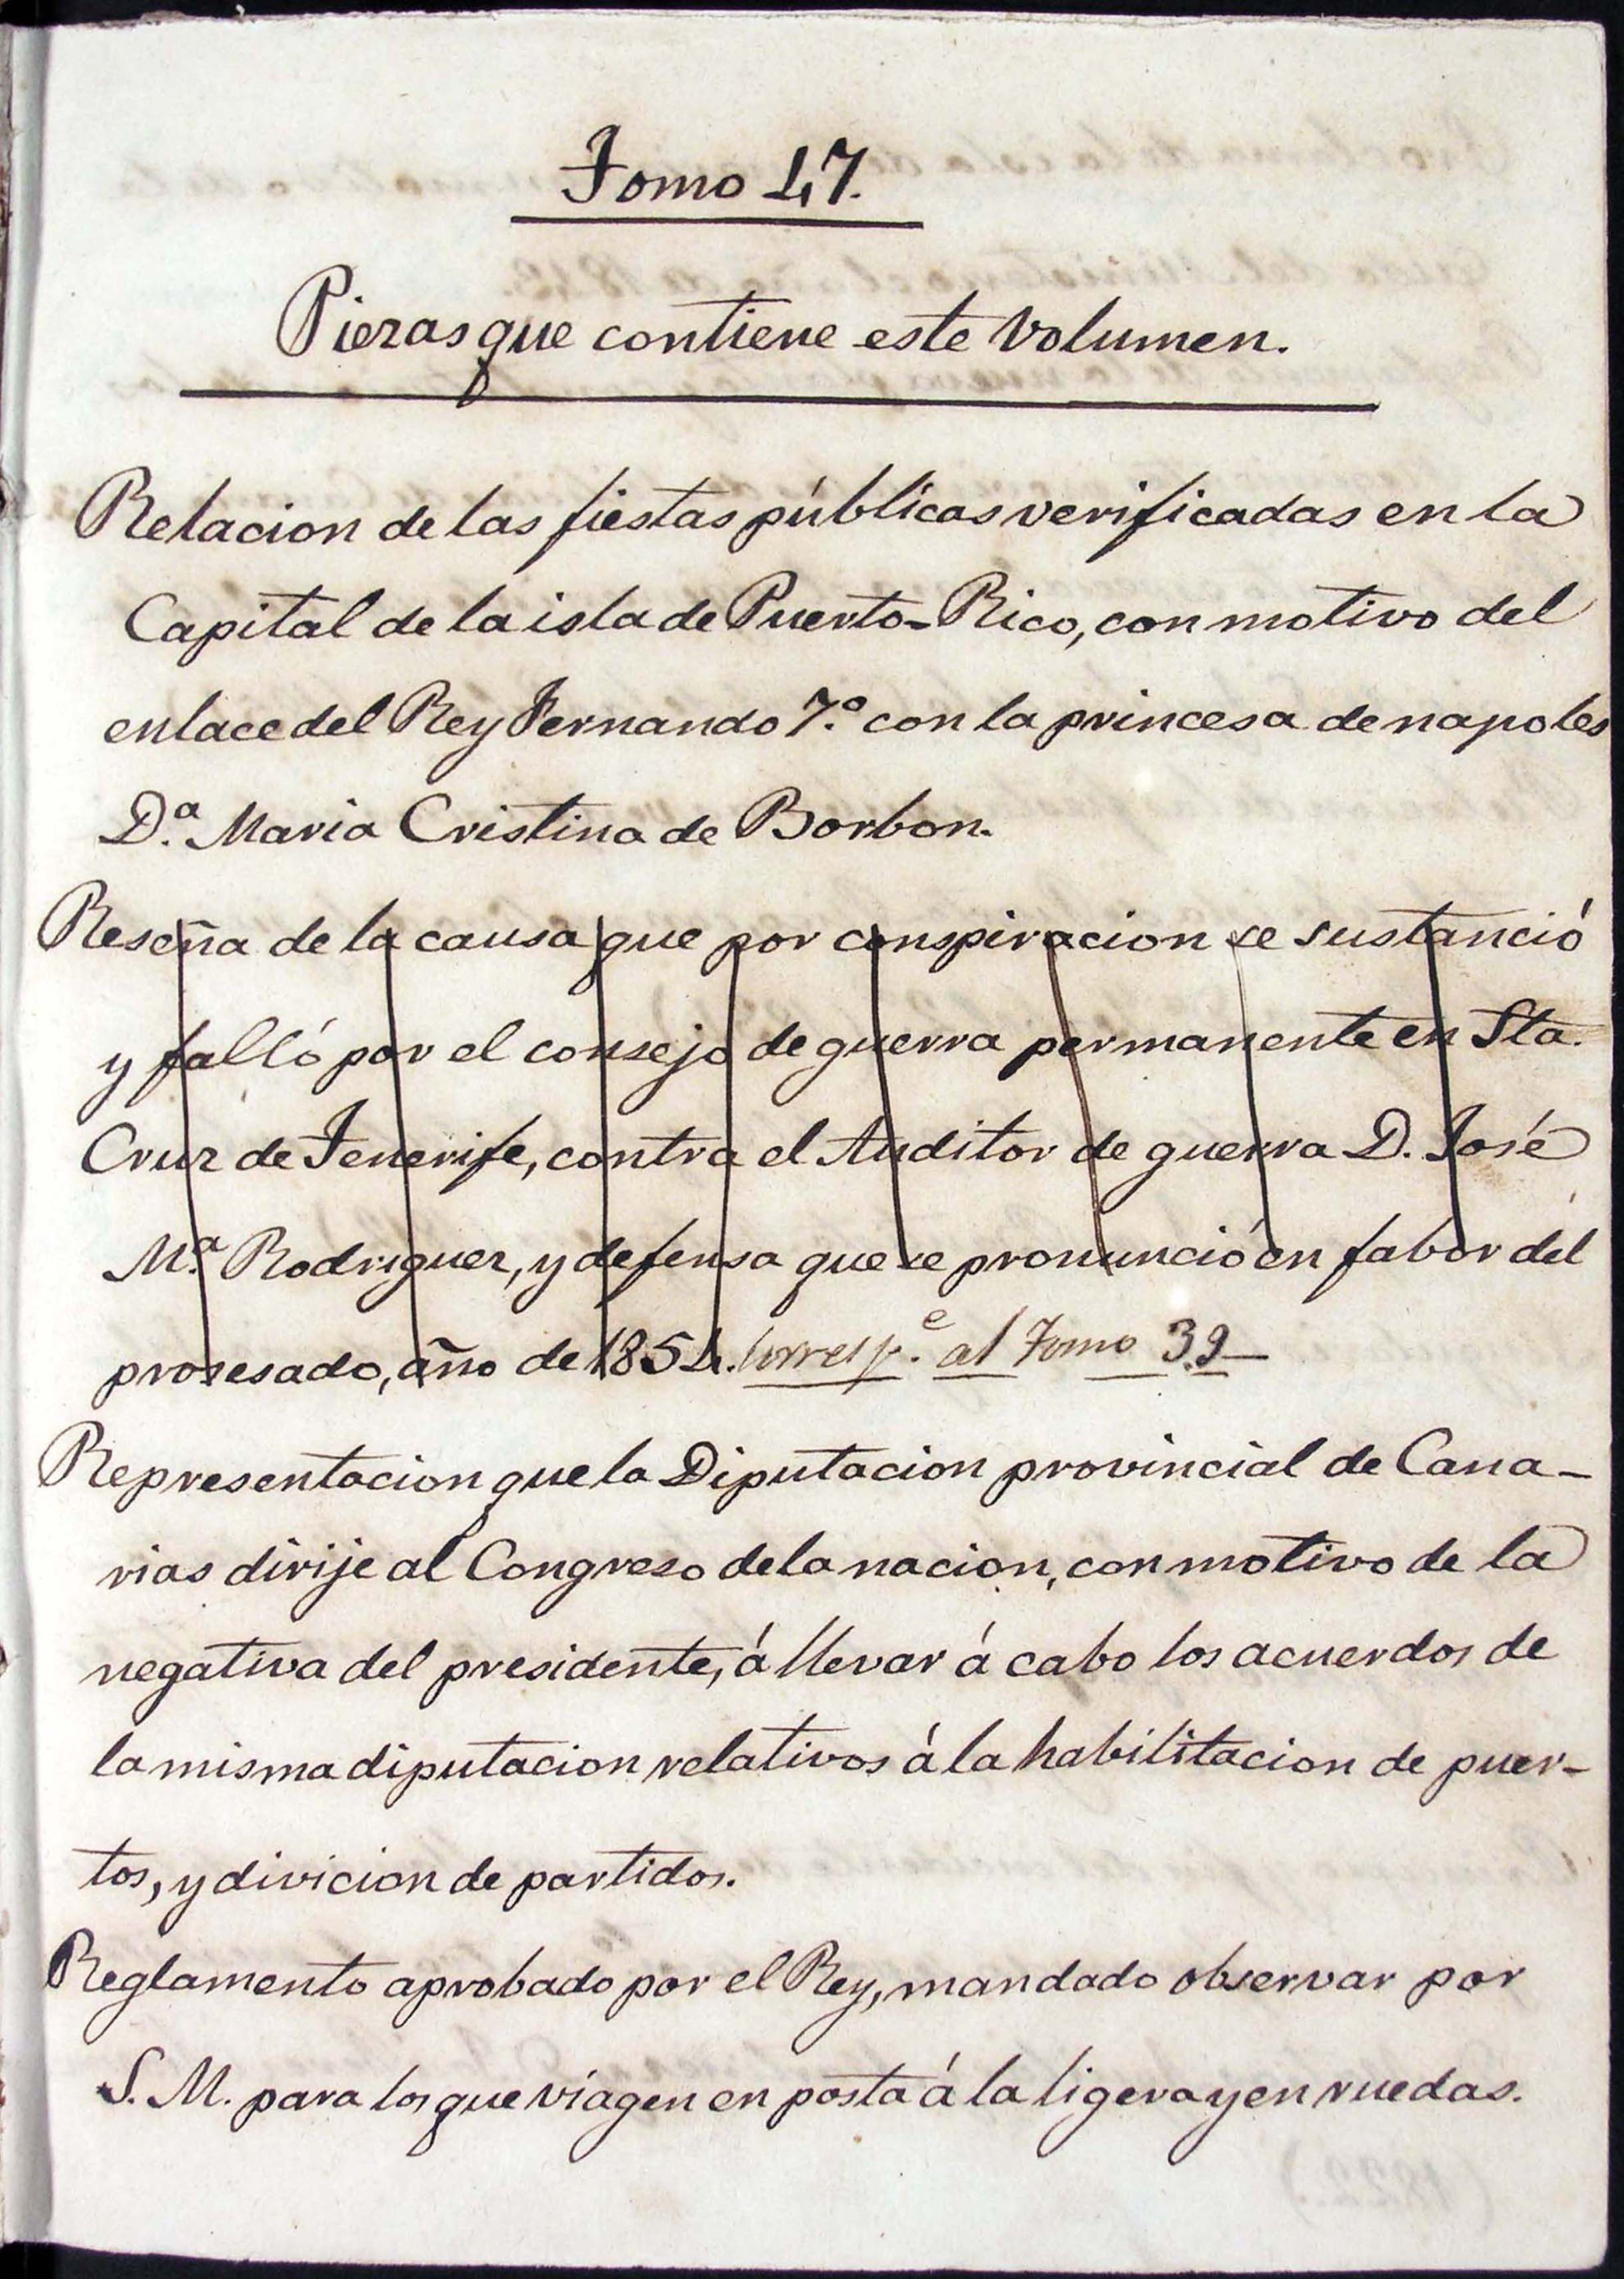 Tomo 47.
Piezas que contiene este volumen.
Relacion de las fiestas públicas verificadas en la
Capital de la isla de Puerto-Rico, con motivo del
enlace del Rey Fernando 7.º con la princesa de napoles
D.ª Maria Cristina de Borbon.
Reseña de la causa que por conspiracion se sustanció
y falló por el consejo de guerra permanente en Sta.
Cruz de Tenerife, contra el Auditor de guerra D. José
M.ª Rodriguez, y defensa que se pronunció en fabor del
prosesado, año de 1854. Corresp.e al Tomo 39
Representacion que la Diputacion provincial de Cana-
rias dirije al Congreso de la nacion, con motivo de la
negativa del presidente, á llevar á cabo los acuerdos de
la misma diputacion relativos á la habilitacion de puer-
tos, y divicion de partidos.
Reglamento aprobado por el Rey, mandado observar por
S. M. para los que viagen en posta á la ligera y en ruedas.